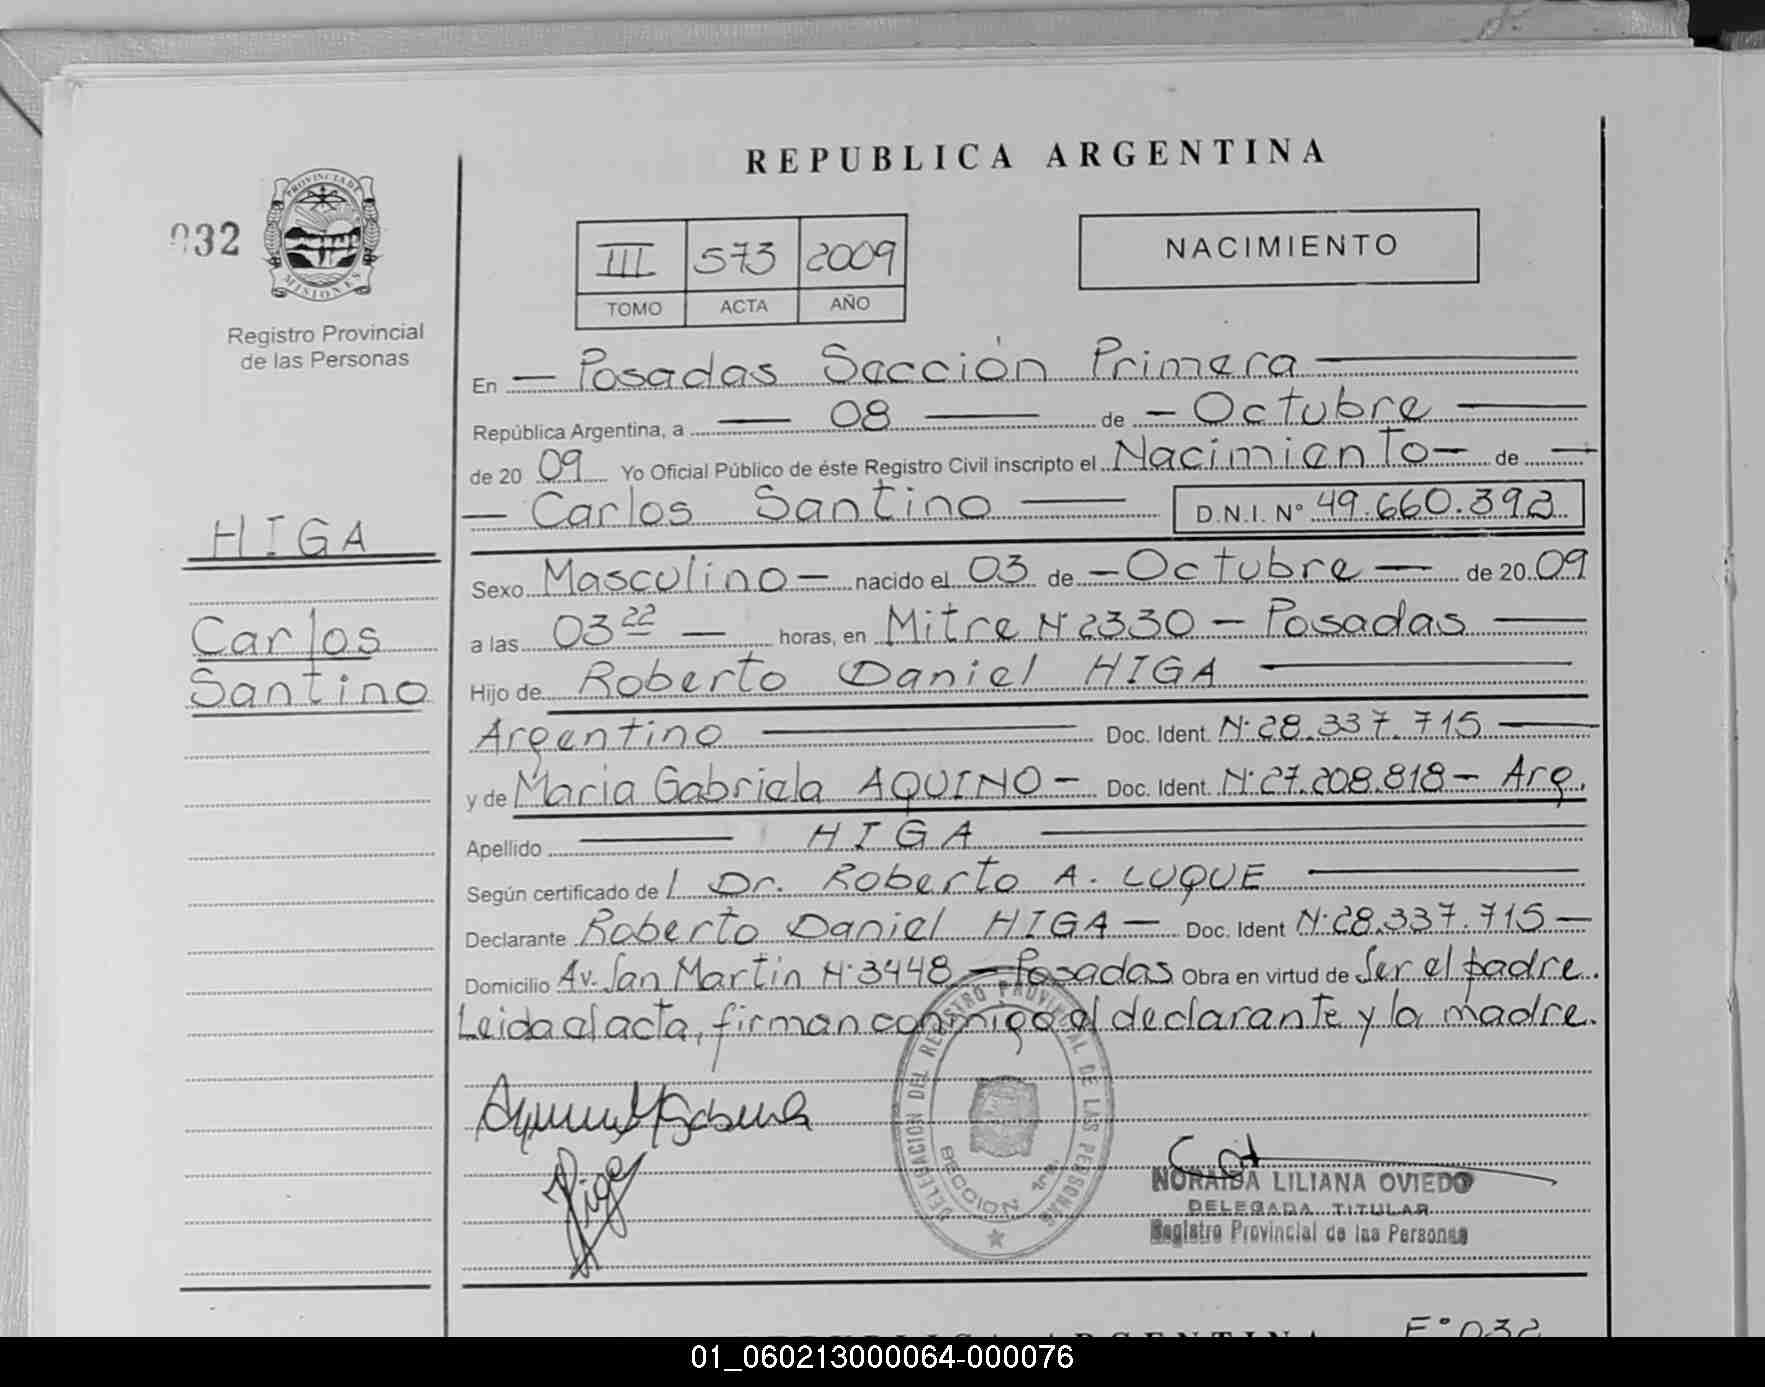 REPUBLICA ARGENTINA
032
PROVINCIA DE
MISIONES
Registro Provincial
de las Personas
III 573 2009
TOMO ACTA AÑO
NACIMIENTO
En — Posadas Sección Primera
República Argentina, a — 08 — de — Octubre —
de 20 09 Yo Oficial Público de éste Registro Civil inscripto el Nacimiento — de —
— Carlos Santino — D.N.I. N° 49.660.392
HIGA
Carlos
Santino
Sexo Masculino — nacido el 03 de — Octubre — de 20 09
a las 03 22 — horas, en Mitre N° 2330 — Posadas —
Hijo de Roberto Daniel HIGA —
Argentino — Doc. Ident. N° 28.337.715 —
y de Maria Gabriela AQUINO — Doc. Ident. N° 27.208.818 — Arg.
Apellido — HIGA —
Según certificado de l Dr. Roberto A. LUQUE —
Declarante Roberto Daniel HIGA — Doc. Ident N° 28.337.715 —
Domicilio Av. San Martin N° 3448 — Posadas Obra en virtud de Ser el padre.
Leida el acta, firman conmigo el declarante y la madre.
DELEGACION DEL REGISTRO PROVINCIAL DE LAS PERSONAS
SECCION 1ra.
Higa
NORAIDA LILIANA OVIEDO
DELEGADA TITULAR
Registro Provincial de las Personas
REPUBLICA ARGENTINA
F° 032
01_060213000064-000076